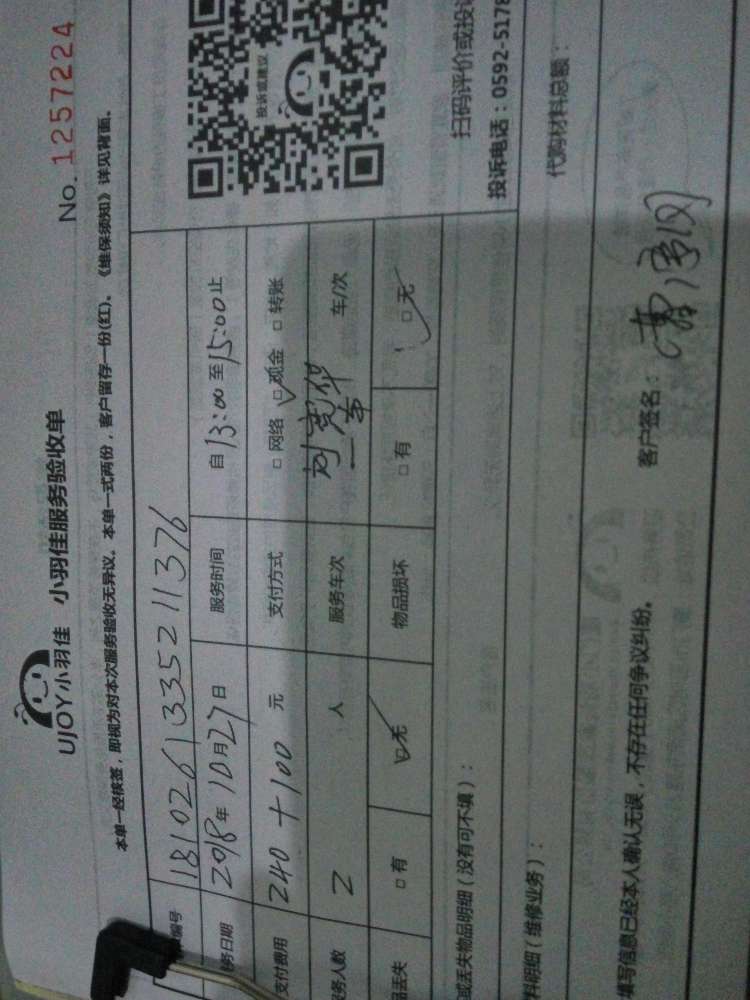 UJOY小羽佳 小羽佳服务验收单
No. 1257224
本单一经核签，即视为对本次服务验收无异议。本单一式两份，客户留存一份(红)。《维保须知》详见背面。
编号 181026133521 1376
务日期 2018年10月27日 服务时间 自13:00至15:00止
支付费用 240+100 元 支付方式 □网络 □现金 □转账
务人数 2 人 服务车次 一车 车/次
品丢失 □有 □无 物品损坏 □有 □无
投诉或建议
扫码评价或投诉
投诉电话：0592-5178
或丢失物品明细（没有可不填）：
料明细（维修业务）：
代购材料总额：
填写信息已经本人确认无误，不存在任何争议纠纷。
客户签名：